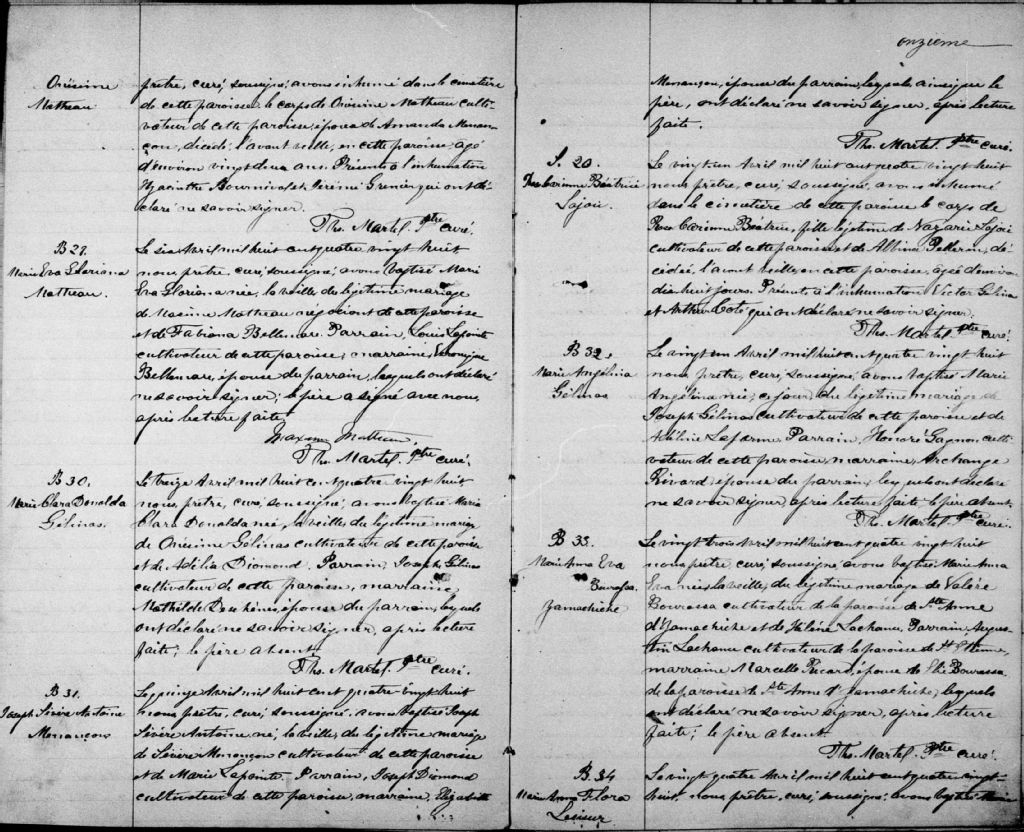 Onésime
Matheau
prêtre, curé, soussigné, avons inhumé dans le cimetière
de cette paroisse le corps de Onésime Matheau culti-
vateur de cette paroisse, époux de Amanda Menan-
çon, décédé, l'avant veille, en cette paroisse, agé
d'environ vingt deux ans. Présents à l'inhumation
Hyacinthe Bournival et Jérémi Grenier qui ont dé-
claré ne savoir signer.
Ths. Martel. Ptre curé.
B 29.
Marie Eva Floriana
Matheau.
Le six Avril mil huit cent quatre vingt huit
nous, prêtre, curé, soussigné, avons baptisé Marie
Eva Floriana née, la veille, du légitime mariage
de Maxime Matheau négociant de cette paroisse
et de Fabiana Bellemare. Parrain, Louis Lapointe
cultivateur de cette paroisse, marraine,
Bellemare, épouse du parrain, lesquels ont déclaré
ne savoir signer; le père a signé avec nous,
après lecture faite.
Maxime Matheau.
Ths. Martel. Ptre curé.
B 30.
Marie Clara Donalda
Gélinas.
Le treize Avril mil huit cent quatre vingt huit
nous, prêtre, curé, soussigné, avons baptisé Marie
Clara Donalda née, la veille, du légitime mariage
de Onésime Gélinas cultivateur de cette paroisse
et de Adélia Diamond. Parrain, Joseph Gélinas
cultivateur de cette paroisse, marraine,
Mathilde Duchêne, épouse du parrain, lesquels
ont déclaré ne savoir signer, après lecture
faite; le père absent.
Ths. Martel. Ptre curé.
B 31.
Joseph Sévère Antoine
Menançon.
Le quinze Avril mil huit cent quatre vingt huit
nous, prêtre, curé, soussigné, avons baptisé Joseph
Sévère Antoine né, la veille, du légitime mariage
de Sévère Menançon cultivateur de cette paroisse
et de Marie Lapointe. Parrain, Joseph Diamond
cultivateur de cette paroisse, marraine, Elizabeth
onzieme
Menançon, épouse du parrain, lesquels ainsi que le
père, ont déclaré ne savoir signer, après lecture
faite.
Ths. Martel. Ptre curé.
S. 20.
Rose Corinne Béatrice
Lajoie.
Le vingt un Avril mil huit cent quatre vingt huit
nous prêtre, curé, soussigné, avons inhumé
dans le cimetière de cette paroisse le corps de
Rose Corinne Béatrice, fille légitime de Nazaire Lajoie
cultivateur de cette paroisse et de Albina Pellerin, dé-
cédée, l'avant veille, en cette paroisse, agée d'environ
dix huit jours. Présents à l'inhumation Victor Gélinas
et Arthur Coté qui ont déclaré ne savoir signer.
Ths. Martel. Ptre curé.
B 32.
Marie Angélina
Gélinas
Le vingt un Avril mil huit cent quatre vingt huit
nous prêtre, curé, soussigné, avons baptisé Marie
Angélina née, ce jour, du légitime mariage de
Joseph Gélinas cultivateur de cette paroisse et de
Adéline Laferme. Parrain, Honoré Gagnon culti-
vateur de cette paroisse, marraine, Archange
Rivard épouse du parrain, lesquels ont déclaré
ne savoir signer, après lecture faite, le père absent.
Ths. Martel. Ptre curé.
B 33.
Marie Anna Eva
Bourassa.
Yamachiche
Le vingt trois Avril mil huit cent quatre vingt huit
nous prêtre, curé, soussigné, avons baptisé Marie Anna
Eva née, la veille, du légitime mariage de Valère
Bourassa cultivateur de la paroisse de Ste Anne
d'Yamachiche et de Hélène Lachance. Parrain, Augus-
tin Lachance cultivateur de la paroisse de St Etienne,
marraine Marcelle Ricard, épouse de Elie Bourassa
de la paroisse de Ste Anne d'Yamachiche, lesquels
ont déclaré ne savoir signer, après lecture
faite; le père absent.
Ths. Martel. Ptre curé.
B. 34
Marie Anna Flora
Lesieur.
Le vingt quatre Avril mil huit cent quatre vingt
huit, nous prêtre, curé, soussigné, avons baptisé Marie